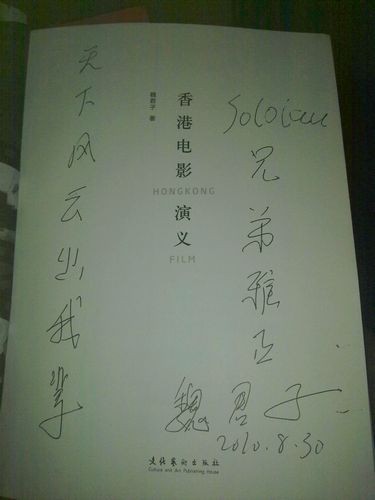 天下风云出我辈
魏君子 著
香港电影演义
HONGKONG
FILM
soloian
兄弟雅正
魏君子
2010.8.30
文化艺术出版社
Culture and Art Publishing House